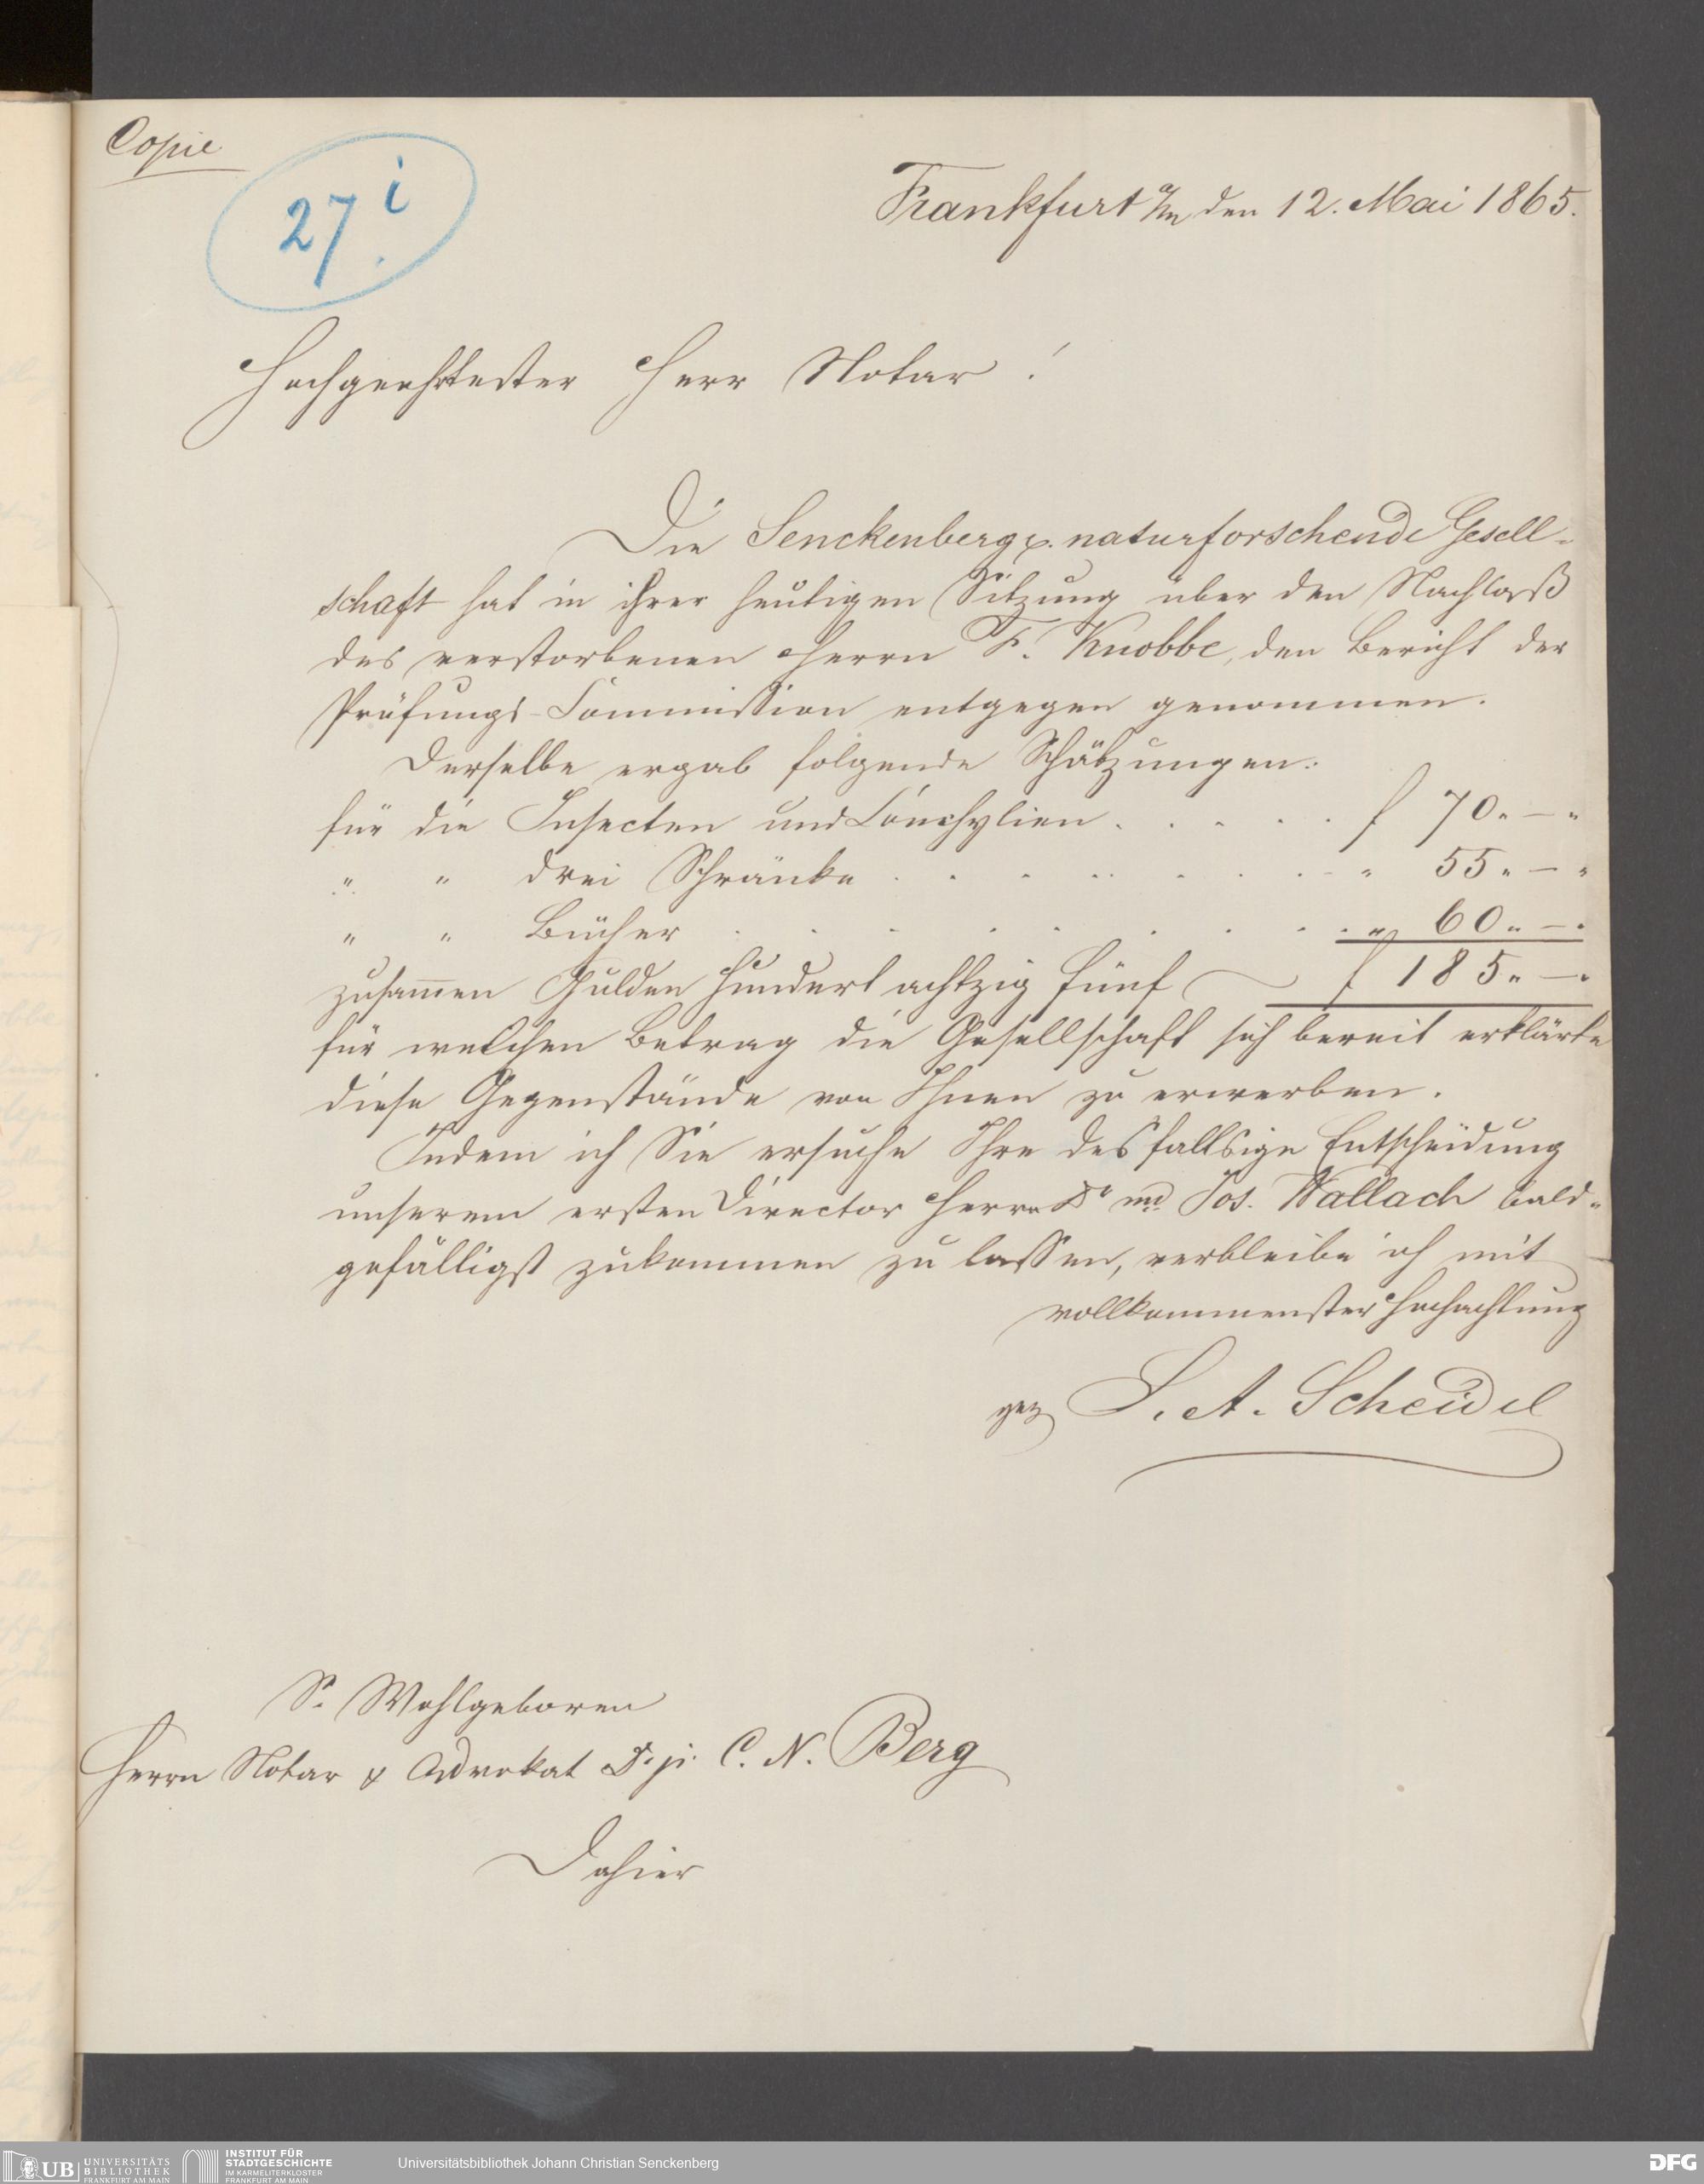 Copie
27 i.
Frankfurt a/m den 12. Mai 1865.
Hochgeehrtester Herr Notar!
Die Senckenbergg. naturforschende Gesell-
schaft hat in ihrer heutigen Sitzung über den Nachlaß
des verstorbenen Herrn F. Knobbe, den Bericht der
Prüfungs-Commission entgegen genommen.
Derselbe ergab folgende Schätzungen:
für die Insecten und Conchylien . . . . . f 70. — "
" " drei Schränke . . . . . . . . " 55 " — "
" " Bücher . . . . . . . . . " 60 " — "
zusam̄en Gulden Hundert achtzig fünf f 185 " — "
für welchen Betrag die Gesellschaft sich bereit erklärte
diese Gegenstände von Ihnen zu erwerben.
Indem ich Sie ersuche Ihre desfallsige Entscheidung
unserem ersten Director Herrn Dr med Jos. Wallach bald-
gefälligst zukommen zu lassen, verbleibe ich mit
vollkommenster Hochachtung
gez S. A. Scheidel
Sr. Wohlgeboren
Herrn Notar & Advokat Dr. j. C. N. Berg
Dahier
UB UNIVERSITÄTS
BIBLIOTHEK
FRANKFURT AM MAIN
INSTITUT FÜR
STADTGESCHICHTE
IM KARMELITERKLOSTER
FRANKFURT AM MAIN
Universitätsbibliothek Johann Christian Senckenberg
DFG